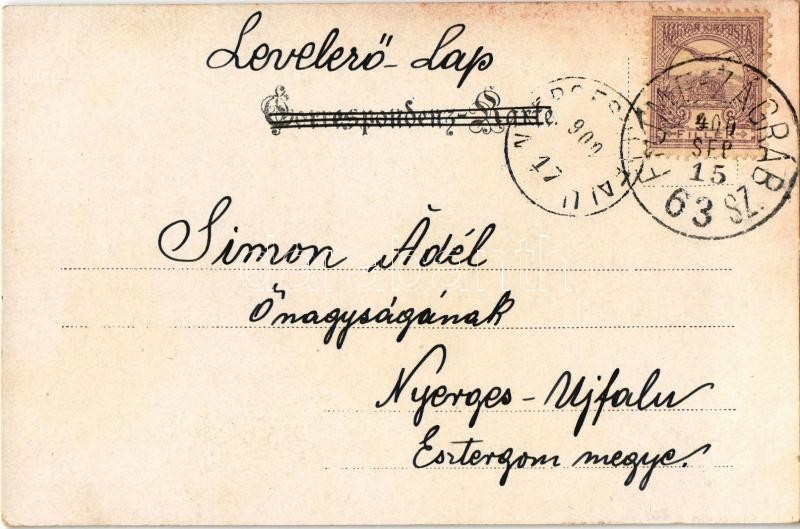 Levelerő-Lap
Correspondenz-Karte.
MAGYAR KIR. POSTA
FILLÉR
ZÁGRÁB
900
SEP
15
63 SZ.
900
17
Simon Ádél
Őnagyságának
Nyerges-Ujfalu
Esztergom megye.
darabanth